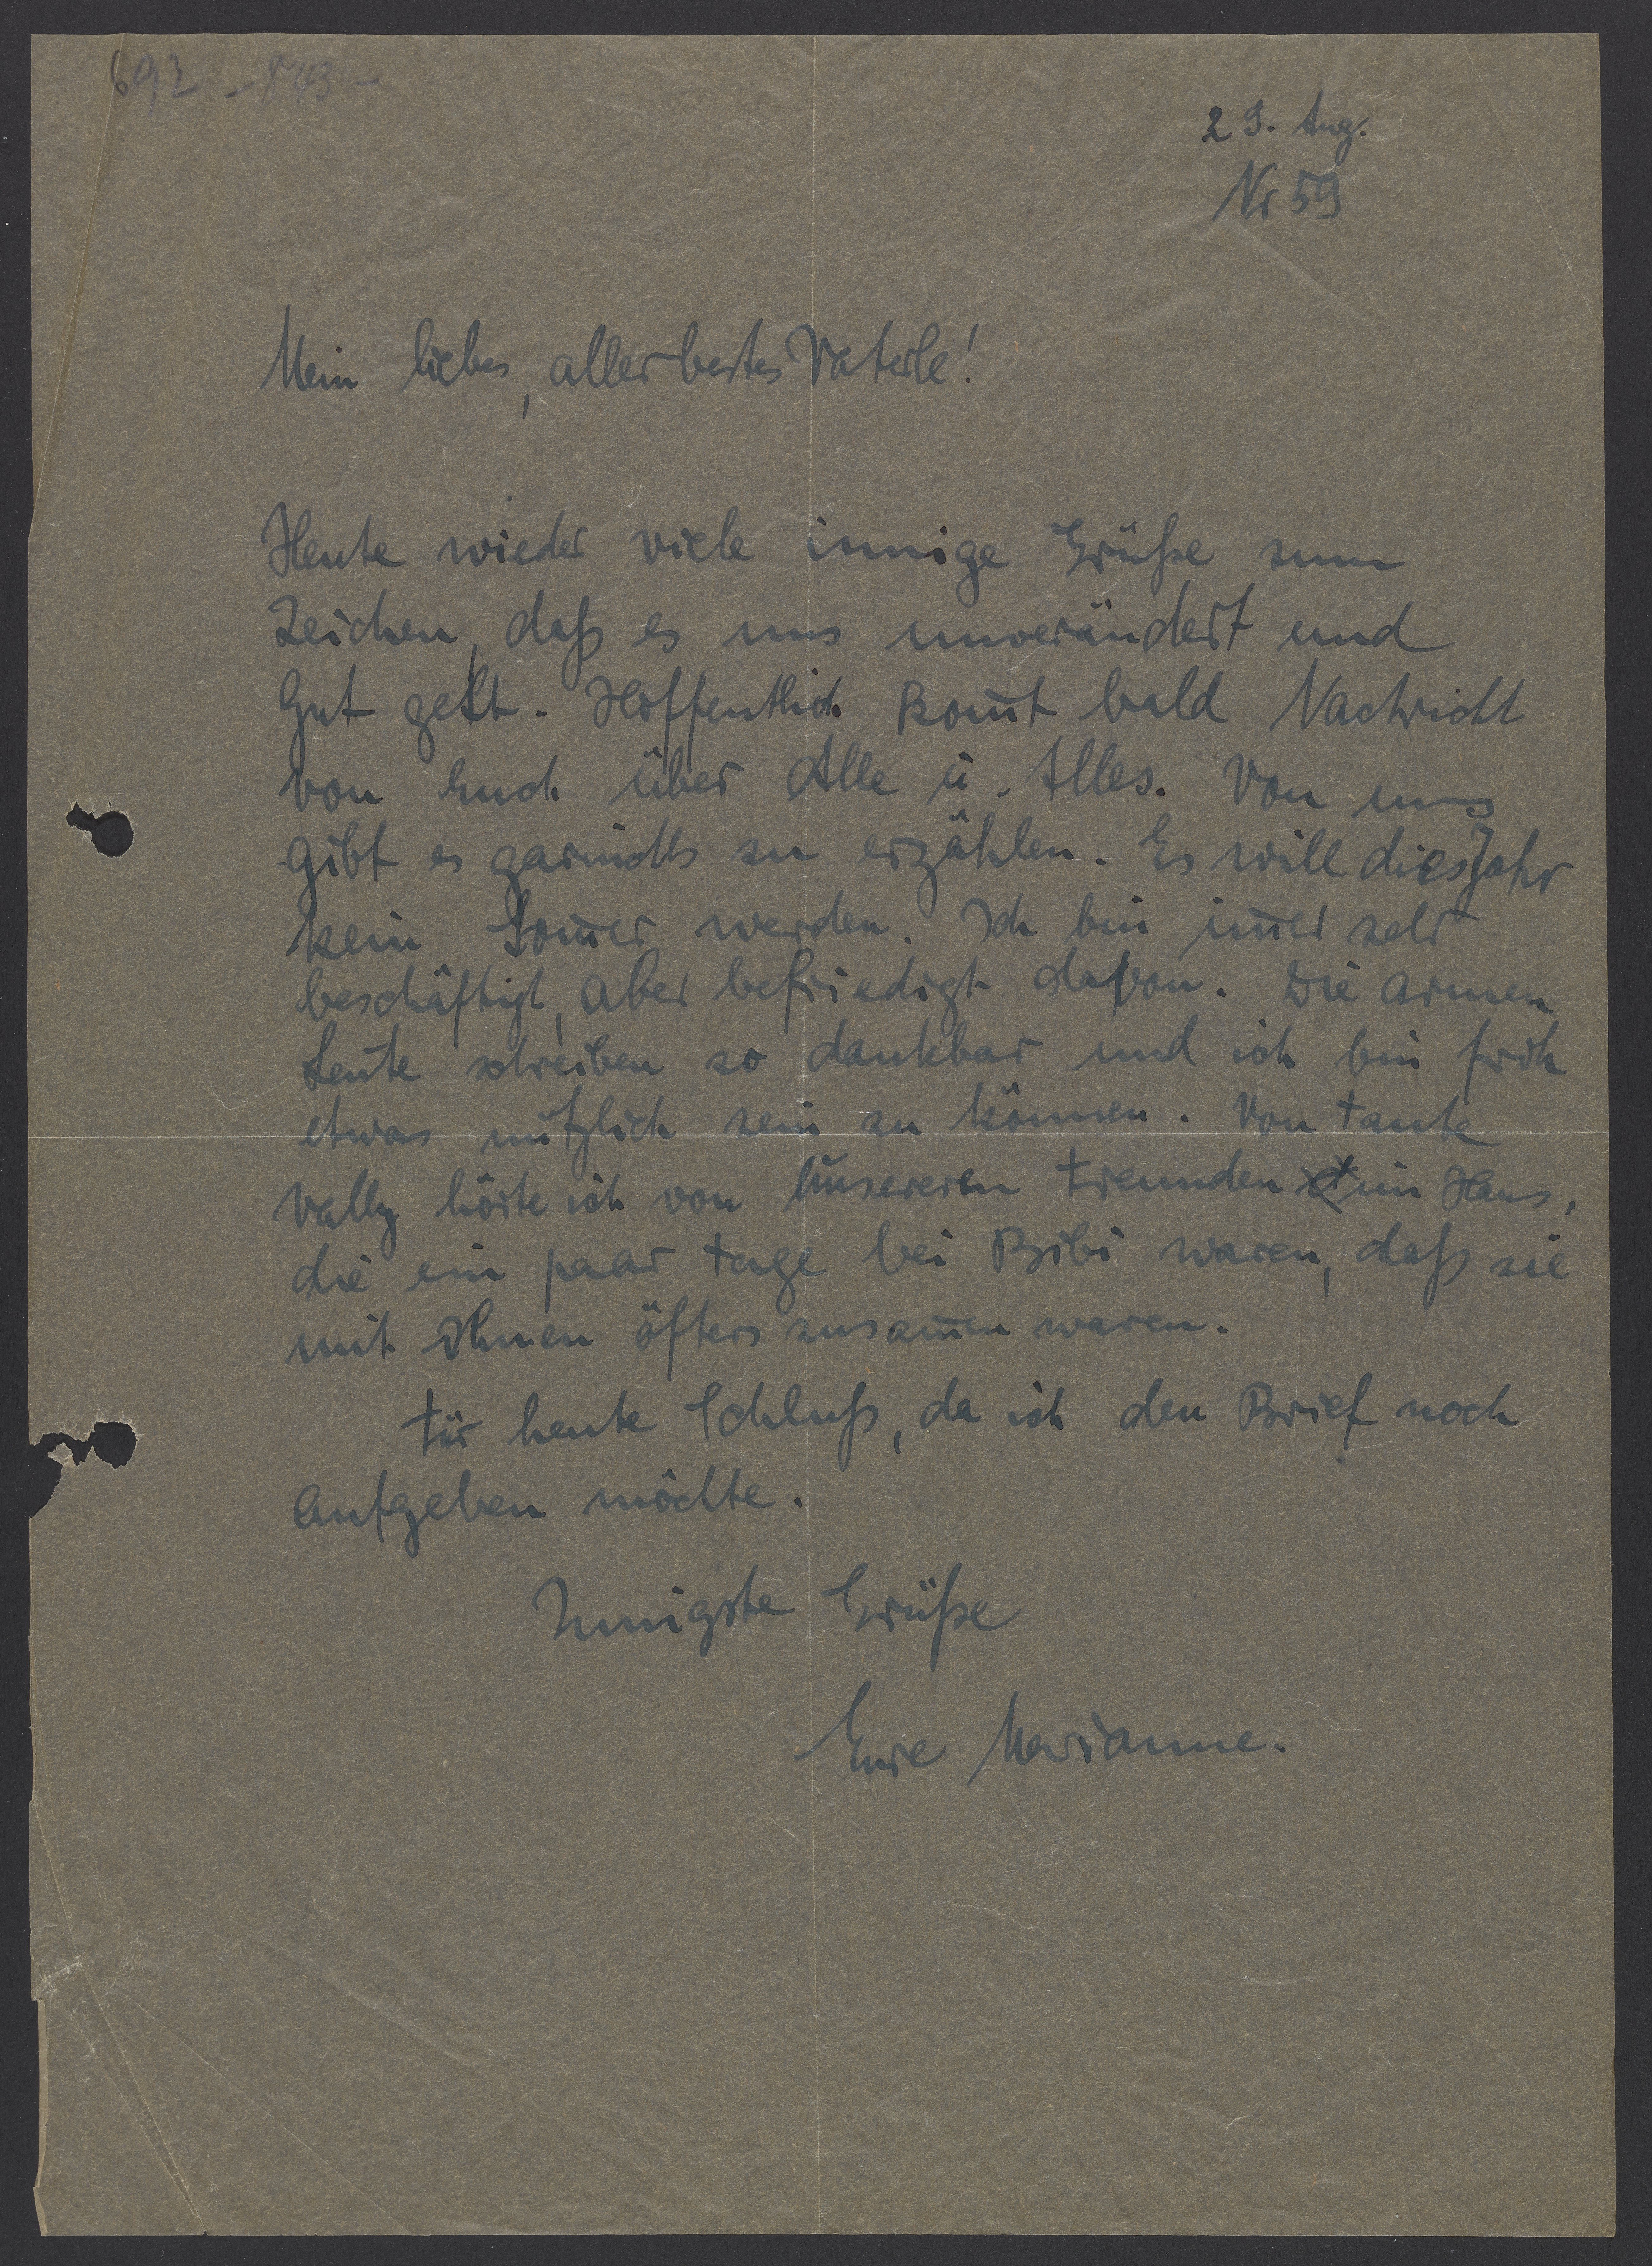 692
29. Aug.
Nr 59
Mein liebes, allerbestes Vaterle!
Heute wieder viele innige Grüße zum
Zeichen, daß es uns unverändert und
Gut geht. Hoffentlich kom̅t bald Nachricht
von Euch über Alle u. Alles. Von uns
gibt es garnichts zu erzählen. Es will dies Jahr
kein Som̅er werden. Ich bin im̅er sehr
beschäftigt, aber befriedigt davon. Die armen
Leute schreiben so dankbar und ich bin froh
etwas nützlich sein zu können. Von Tante
Vally hörte ich von unsereren Freunden im Haus,
die ein paar Tage bei Bibi waren, daß sie
mit Ihnen öfters zusam̅en waren.
Für heute Schluß, da ich den Brief noch
Aufgeben möchte.
Innigste Grüße
Eure Marianne.